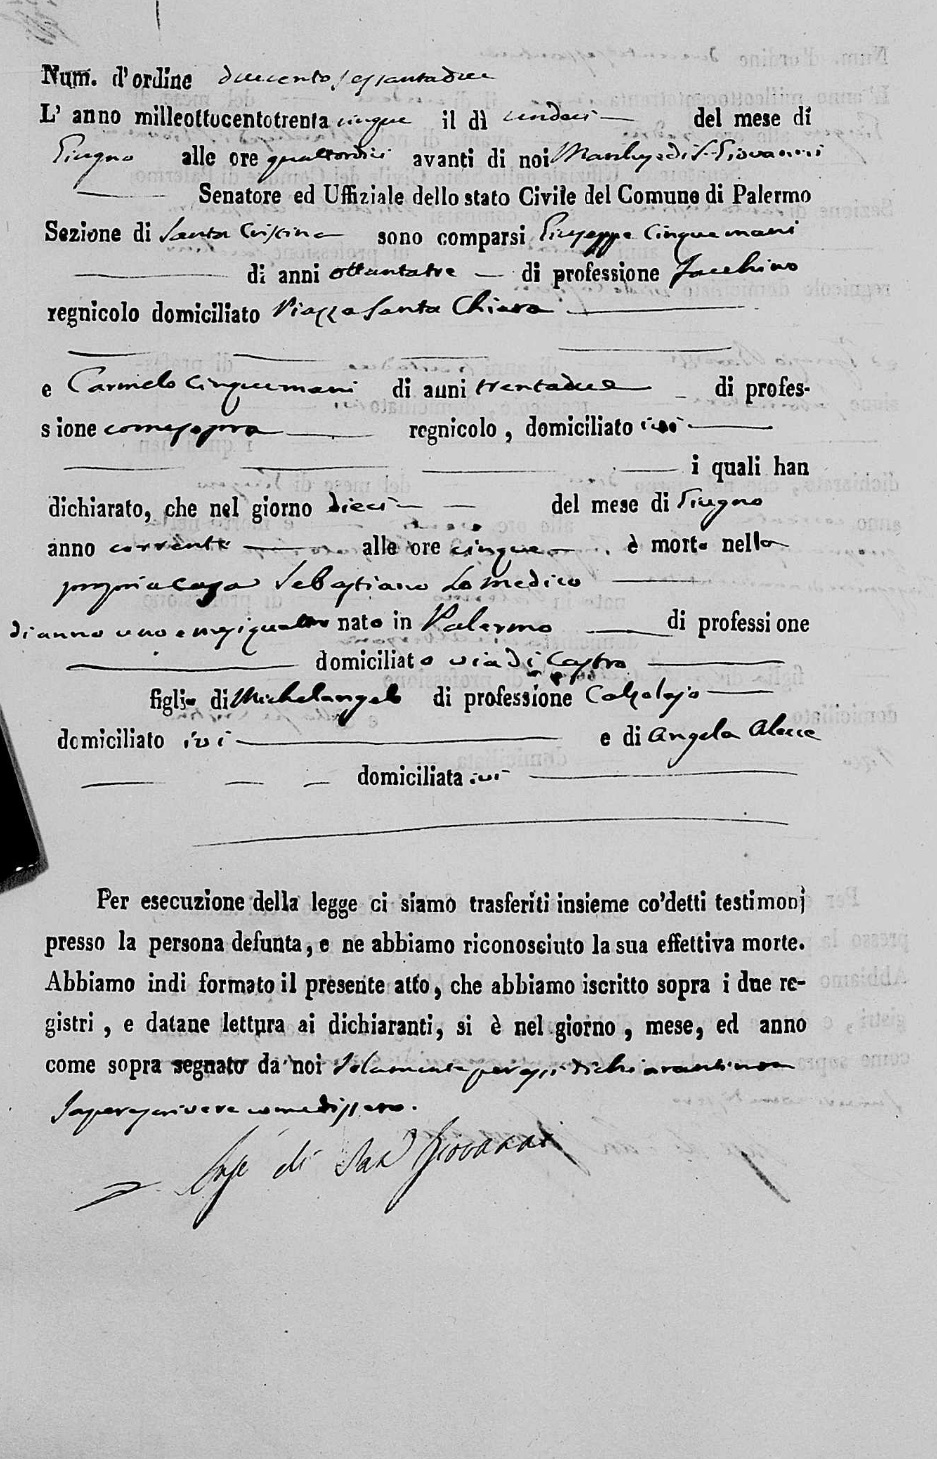 Num. d'ordine duecento sessantadue
L' anno milleottocentotrenta cinque il dì undeci del mese di
Giugno alle ore quattordici avanti di noi Marchese di S. Giovanni
Senatore ed Uffiziale dello stato Civile del Comune di Palermo
Sezione di Santa Cristina sono comparsi Giuseppe Cinquemani
di anni ottantatre di professione Facchino
regnicolo domiciliato Piazza Santa Chiara
e Carmelo Cinquemani di anni trentadue di profes-
sione come sopra regnicolo, domiciliato ivi
i quali han
dichiarato, che nel giorno dieci del mese di Giugno
anno corrente alle ore cinque è morto nella
propria casa Sebastiano Lo Medico
di anno uno e mesi quattro nato in Palermo di professione
domiciliato via di Castro
figlio di Michelangelo di professione Calzolajo
domiciliato ivi e di Angela
domiciliata ivi
Per esecuzione della legge ci siamo trasferiti insieme co'detti testimonj
presso la persona defunta, e ne abbiamo riconosciuto la sua effettiva morte.
Abbiamo indi formato il presente atto, che abbiamo iscritto sopra i due re-
gistri, e datane lettura ai dichiaranti, si è nel giorno, mese, ed anno
come sopra segnato da noi solamente per essi dichiaranti non
saper scrivere come dissero.
di San Giovanni